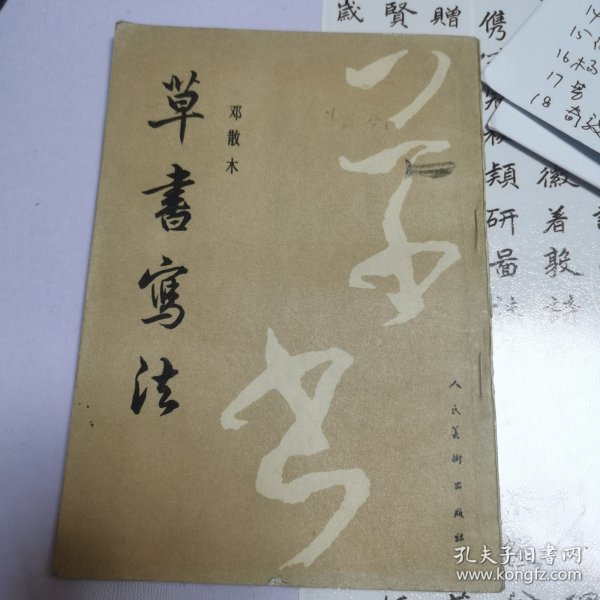 草書寫法
邓散木
草书
人民美術出版社
歲賢贈
穎研圖
徽着敦
14
15
16
17
18
孔夫子旧书网
www.kongfz.com